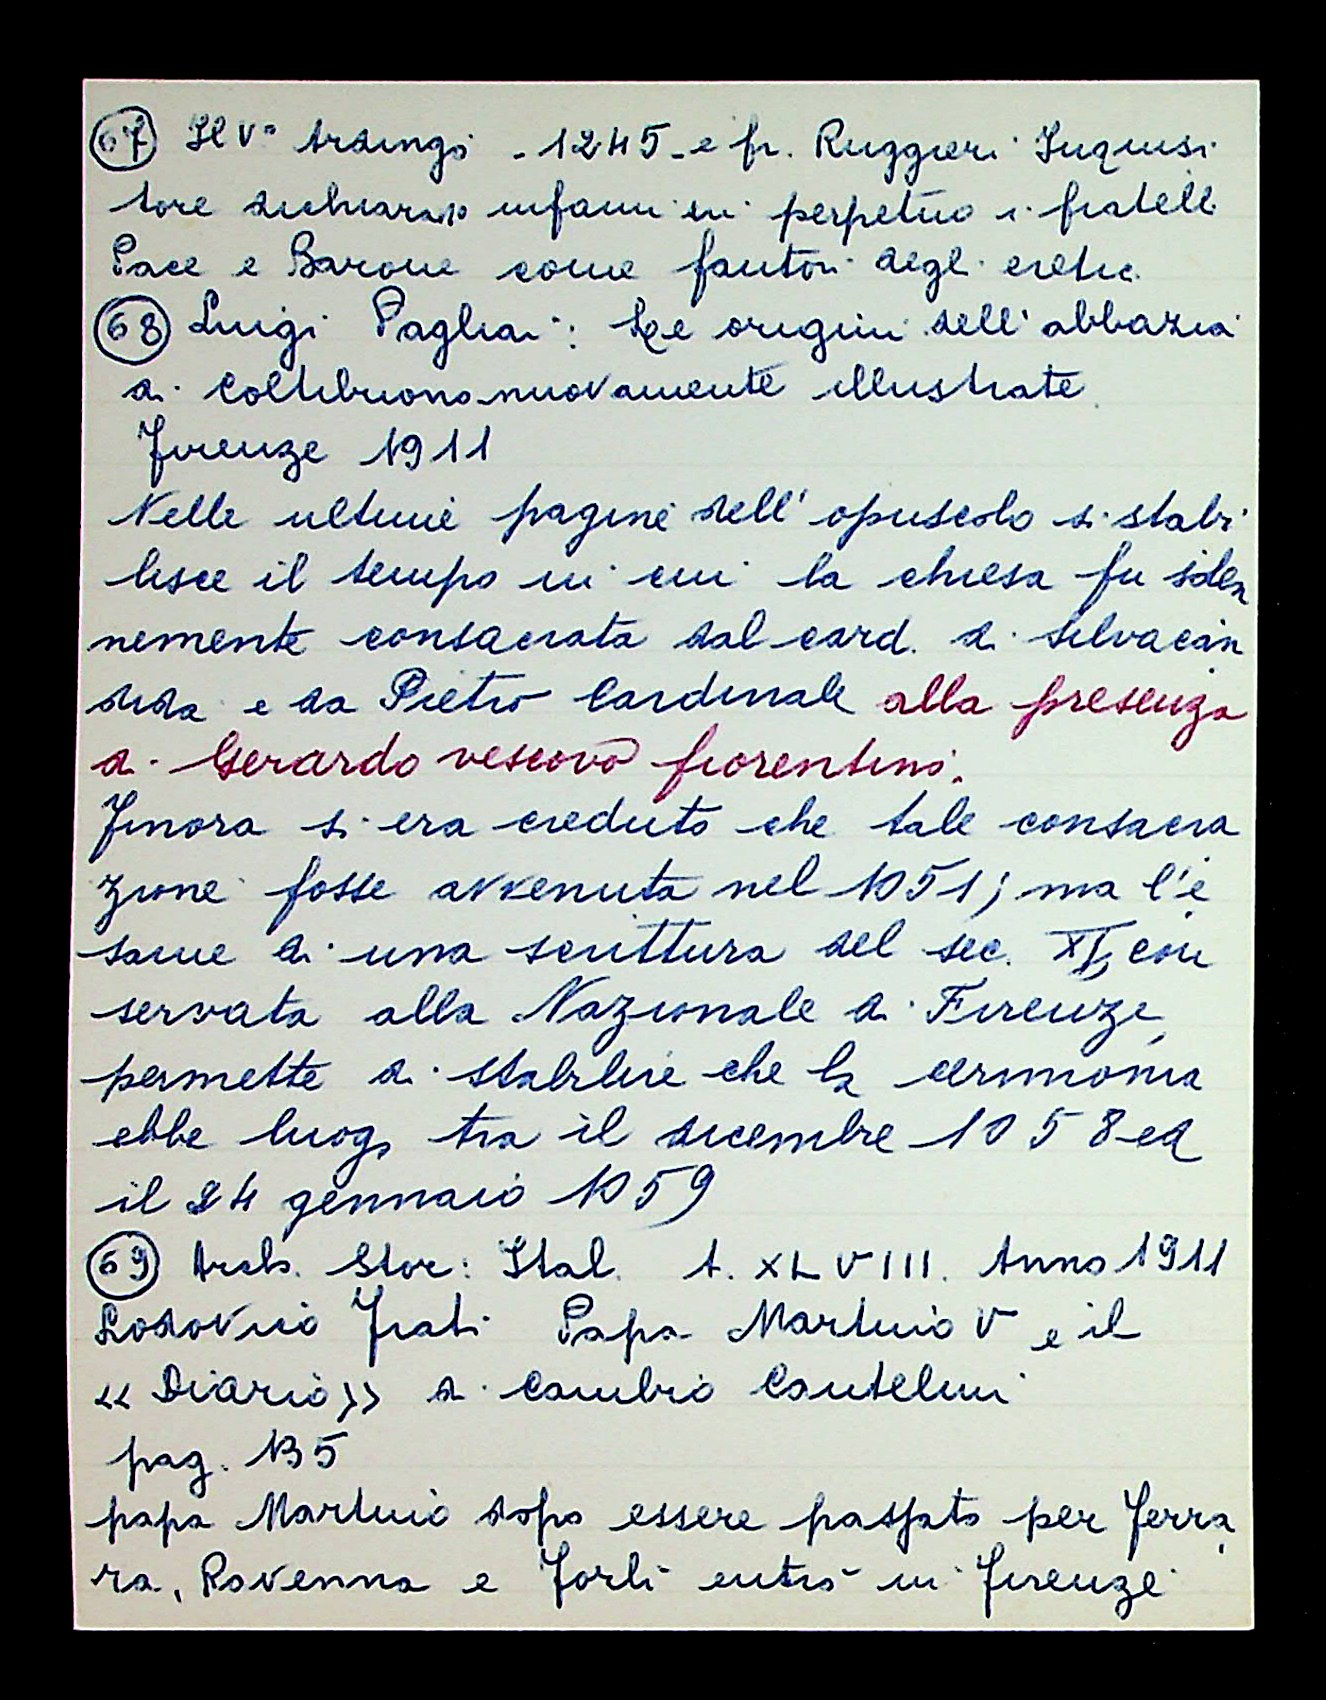 67 Il V° Ardingo - 1245 - e fr. Ruggieri Inquisi
tore dichiarano infami in perpetuo i fratelli
Pace e Barone come fautori degli eretici
68 Luigi Pagliai: Le origini dell'abbazia
di Coltibuono nuovamente illustrate
Firenze 1911
Nelle ultime pagine dell'opuscolo si stabi
lisce il tempo in cui la chiesa fu solen
nemente consacrata dal card. di Silvacan
dida e da Pietro Cardinale alla presenza
di Gerardo vescovo fiorentino.
Finora si era creduto che tale consacra
zione fosse avvenuta nel 1051; ma l'e
same di una scrittura del sec. XI, con
servata alla Nazionale di Firenze,
permette di stabilire che la cerimonia
ebbe luogo tra il dicembre 1058 ed
il 24 gennaio 1059
69 Arch. Stor. Ital. t. XLVIII. Anno 1911
Lodovico Frati Papa Martino V e il
«Diario» di Cambio Cantelmi
pag. 135
papa Martino dopo essere passato per Ferra
ra, Ravenna e Forlì entrò in Firenze